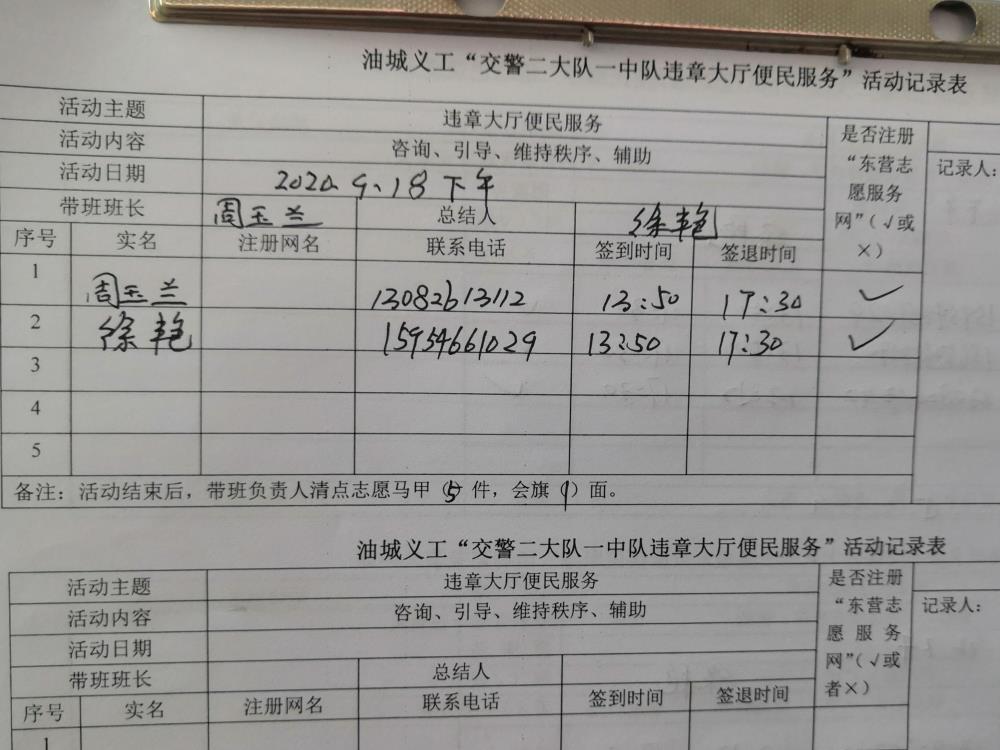 油城义工“交警二大队一中队违章大厅便民服务”活动记录表
活动主题 违章大厅便民服务 是否注册“东营志愿服务网”(√或×) 记录人:
活动内容 咨询、引导、维持秩序、辅助
活动日期 2020.9.18下午
带班班长 周玉兰 总结人 徐艳
序号 实名 注册网名 联系电话 签到时间 签退时间
1 周玉兰 13082613112 13:50 17:30 √
2 徐艳 15954661029 13:50 17:30 √
3
4
5
备注:活动结束后,带班负责人清点志愿马甲(5)件,会旗(1)面。
油城义工“交警二大队一中队违章大厅便民服务”活动记录表
活动主题 违章大厅便民服务 是否注册“东营志愿服务网”(√或者×) 记录人:
活动内容 咨询、引导、维持秩序、辅助
活动日期
带班班长 总结人
序号 实名 注册网名 联系电话 签到时间 签退时间
1